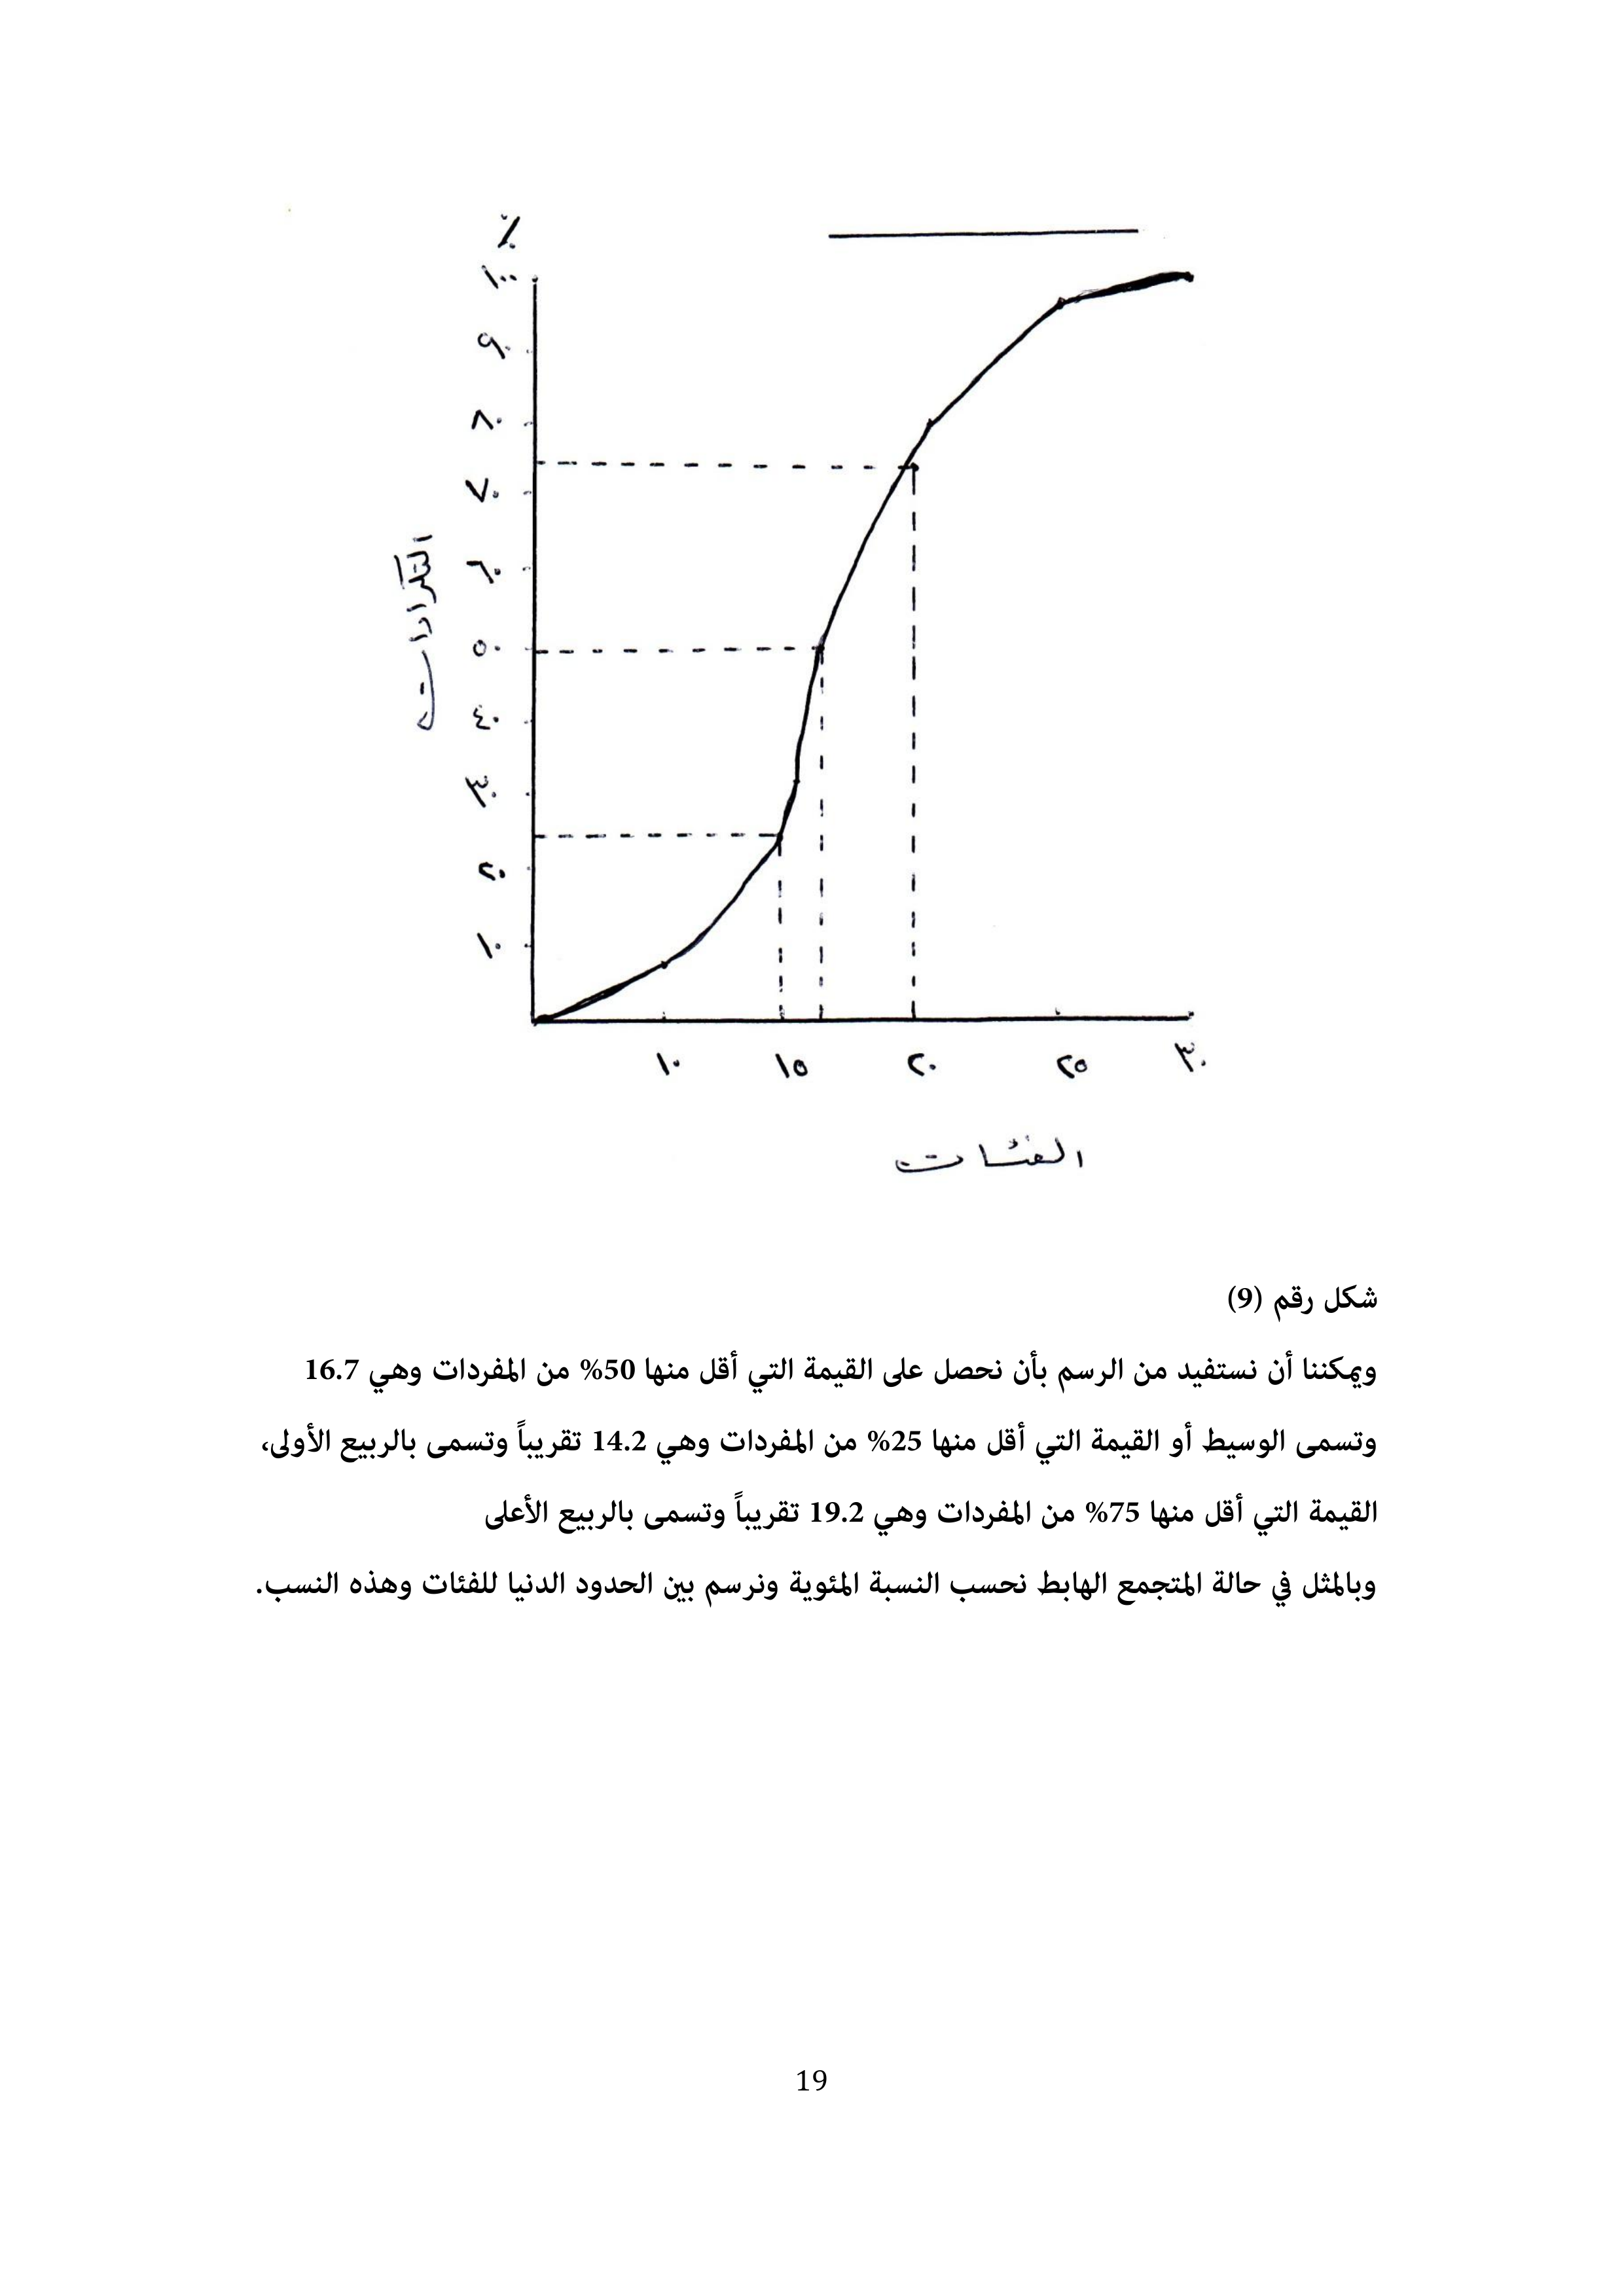 ٪
١٠٠
٩٠
٨٠
٧٠
٦٠
٥٠
٤٠
٣٠
٢٠
١٠
التكرارات
١٠ ١٥ ٢٠ ٢٥ ٣٠
الفئات
شكل رقم (9)
ويمكننا أن نستفيد من الرسم بأن نحصل على القيمة التي أقل منها 50% من المفردات وهي 16.7
وتسمى الوسيط أو القيمة التي أقل منها 25% من المفردات وهي 14.2 تقريباً وتسمى بالربيع الأولى،
القيمة التي أقل منها 75% من المفردات وهي 19.2 تقريباً وتسمى بالربيع الأعلى
وبالمثل في حالة المتجمع الهابط نحسب النسبة المئوية ونرسم بين الحدود الدنيا للفئات وهذه النسب.
19